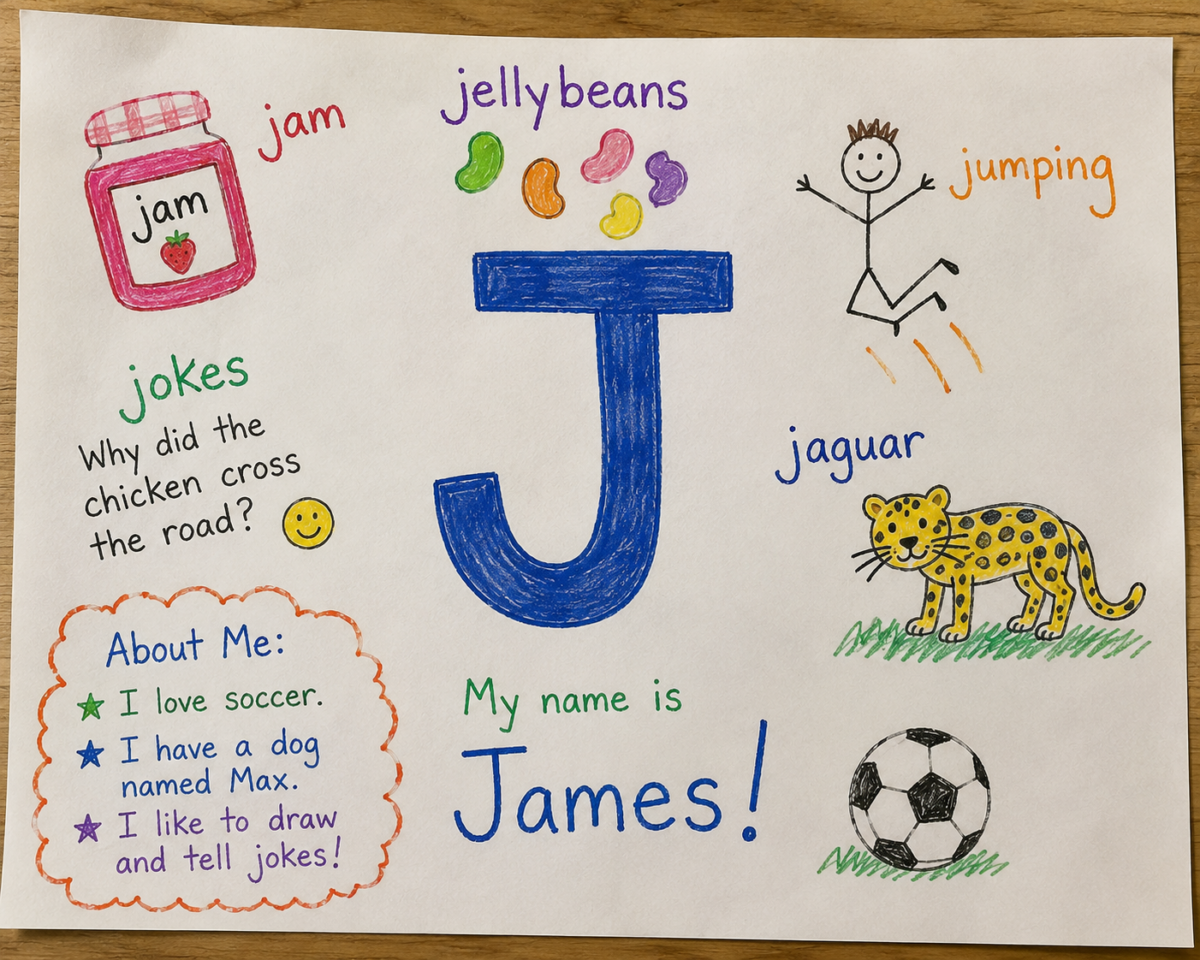 jam
jam
jellybeans
jumping
J
jokes
Why did the
chicken cross
the road?
jaguar
About Me:
I love soccer.
I have a dog
named Max.
I like to draw
and tell jokes!
My name is
James!